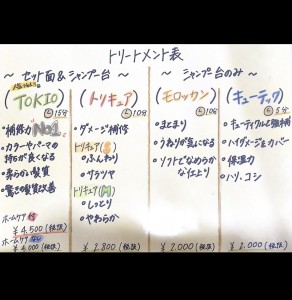 トリートメント表
～ セット面&シャンプー台 ～
～ シャンプー台のみ ～
(TOKIO)
15分
・補修力No1
・カラーやパーマの
持ちが良くなる
・柔らかい髪質
・驚きの髪質改善
ホームケア 付
¥4,500(税抜)
ホームケア なし
¥4,000(税抜)
(トリキュア)
10分
・ダメージ補修
トリキュア(S)
・ふんわり
・サラツヤ
トリキュア(M)
・しっとり
・やわらか
¥2,800(税抜)
(モロッカン)
10分
・まとまり
・うねりが気になる
・ソフトでなめらか
な仕上り
¥2,000(税抜)
(キューティック)
5分
・キューティクルを強補
・ハイダメージをカバー
・保温力
・ハリ、コシ
¥2,000(税抜)